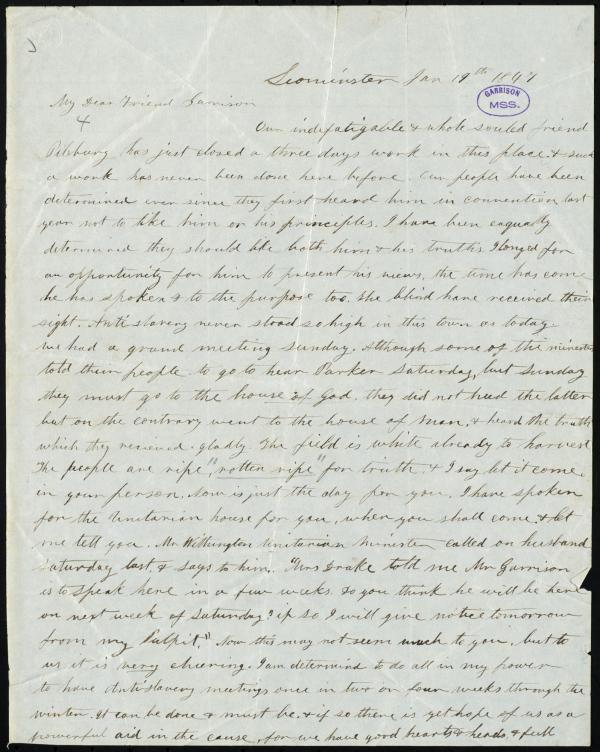 Leominster Jan 19th 1847
GARRISON
MSS.
My Dear Friend Garrison
Our indefatigable & whole souled friend
Pilsbury has just closed a three days work in this place & such
a work has never been done here before Our people have been
determined ever since they first heard him in convention last
year not to like him or his principles. I have been equally
determined they should like both him & his truths. I longed for
an opportunity for him to present his views, the time has come
he has spoken & to the purpose too. The blind have received their
sight. Anti slavery never stood so high in this town as today.
We had a grand meeting Sunday. Although some of the ministers
told their people to go to hear Parker Saturday, but Sunday
they must go to the house of God. they did not heed the latter
but on the contrary went to the house of man, & heard the truth
which they recieved gladly The field is white already to harvest
The people are ripe, "rotten ripe" for truth & I say let it come
in your person. Now is just the day for you. I have spoken
for the Unitarian house for you, when you shall come, & let
me tell you. Mr Withington Unitarian Minister called on husband
Saturday last, & says to him, "Mrs Drake told me Mr Garrison
is to speak here in a few weeks. Do you think he will be here
on next week of Saturday? if so I will give notice tomorrow
from my Pulpit." Now this may not seem much to you, but to
us it is very cheering. I am determind to do all in my power
to have Antislavery meetings once in two or four weeks through the
winter. It can be done & must be. & if so there is yet hope of us as a
powerful aid in the cause, for we have good hearts & heads, & full